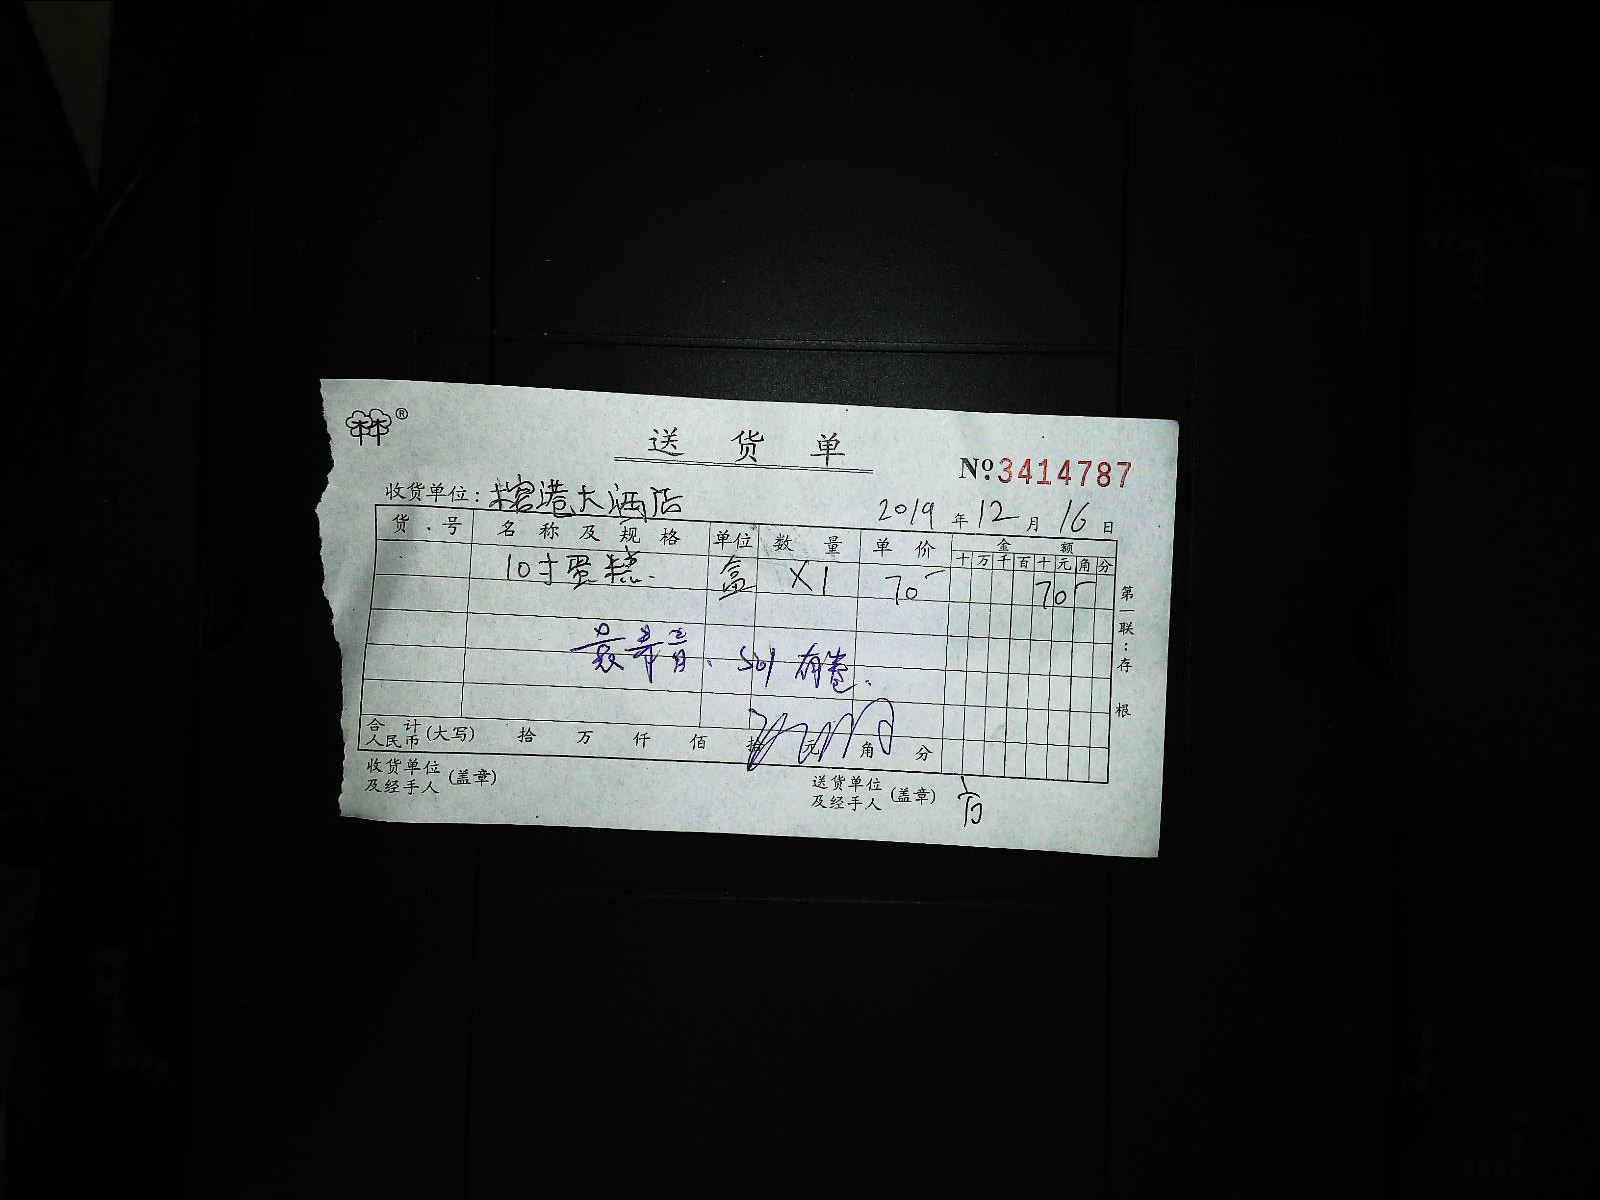 ®
送货单
№3414787
收货单位：榕港大酒店
2019年12月16日
货号 名称及规格 单位 数量 单价 金额
十万千百十元角分
10寸蛋糕. 盒 X1 70 70
501 有卷.
第一联：存根
合计人民币(大写) 拾 万 仟 佰 拾 元 角 分
收货单位及经手人(盖章) 送货单位及经手人(盖章)